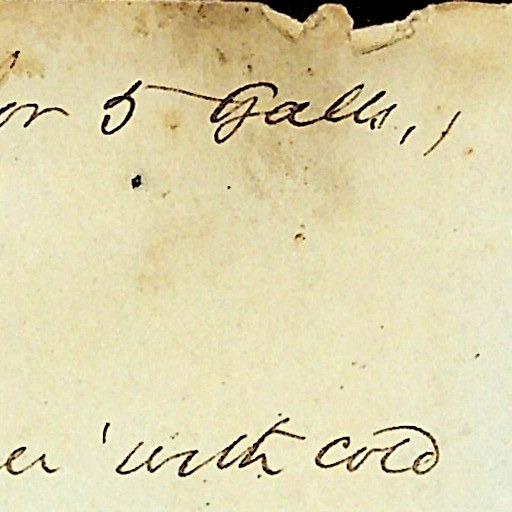 or 5 Galls,,
er with cold